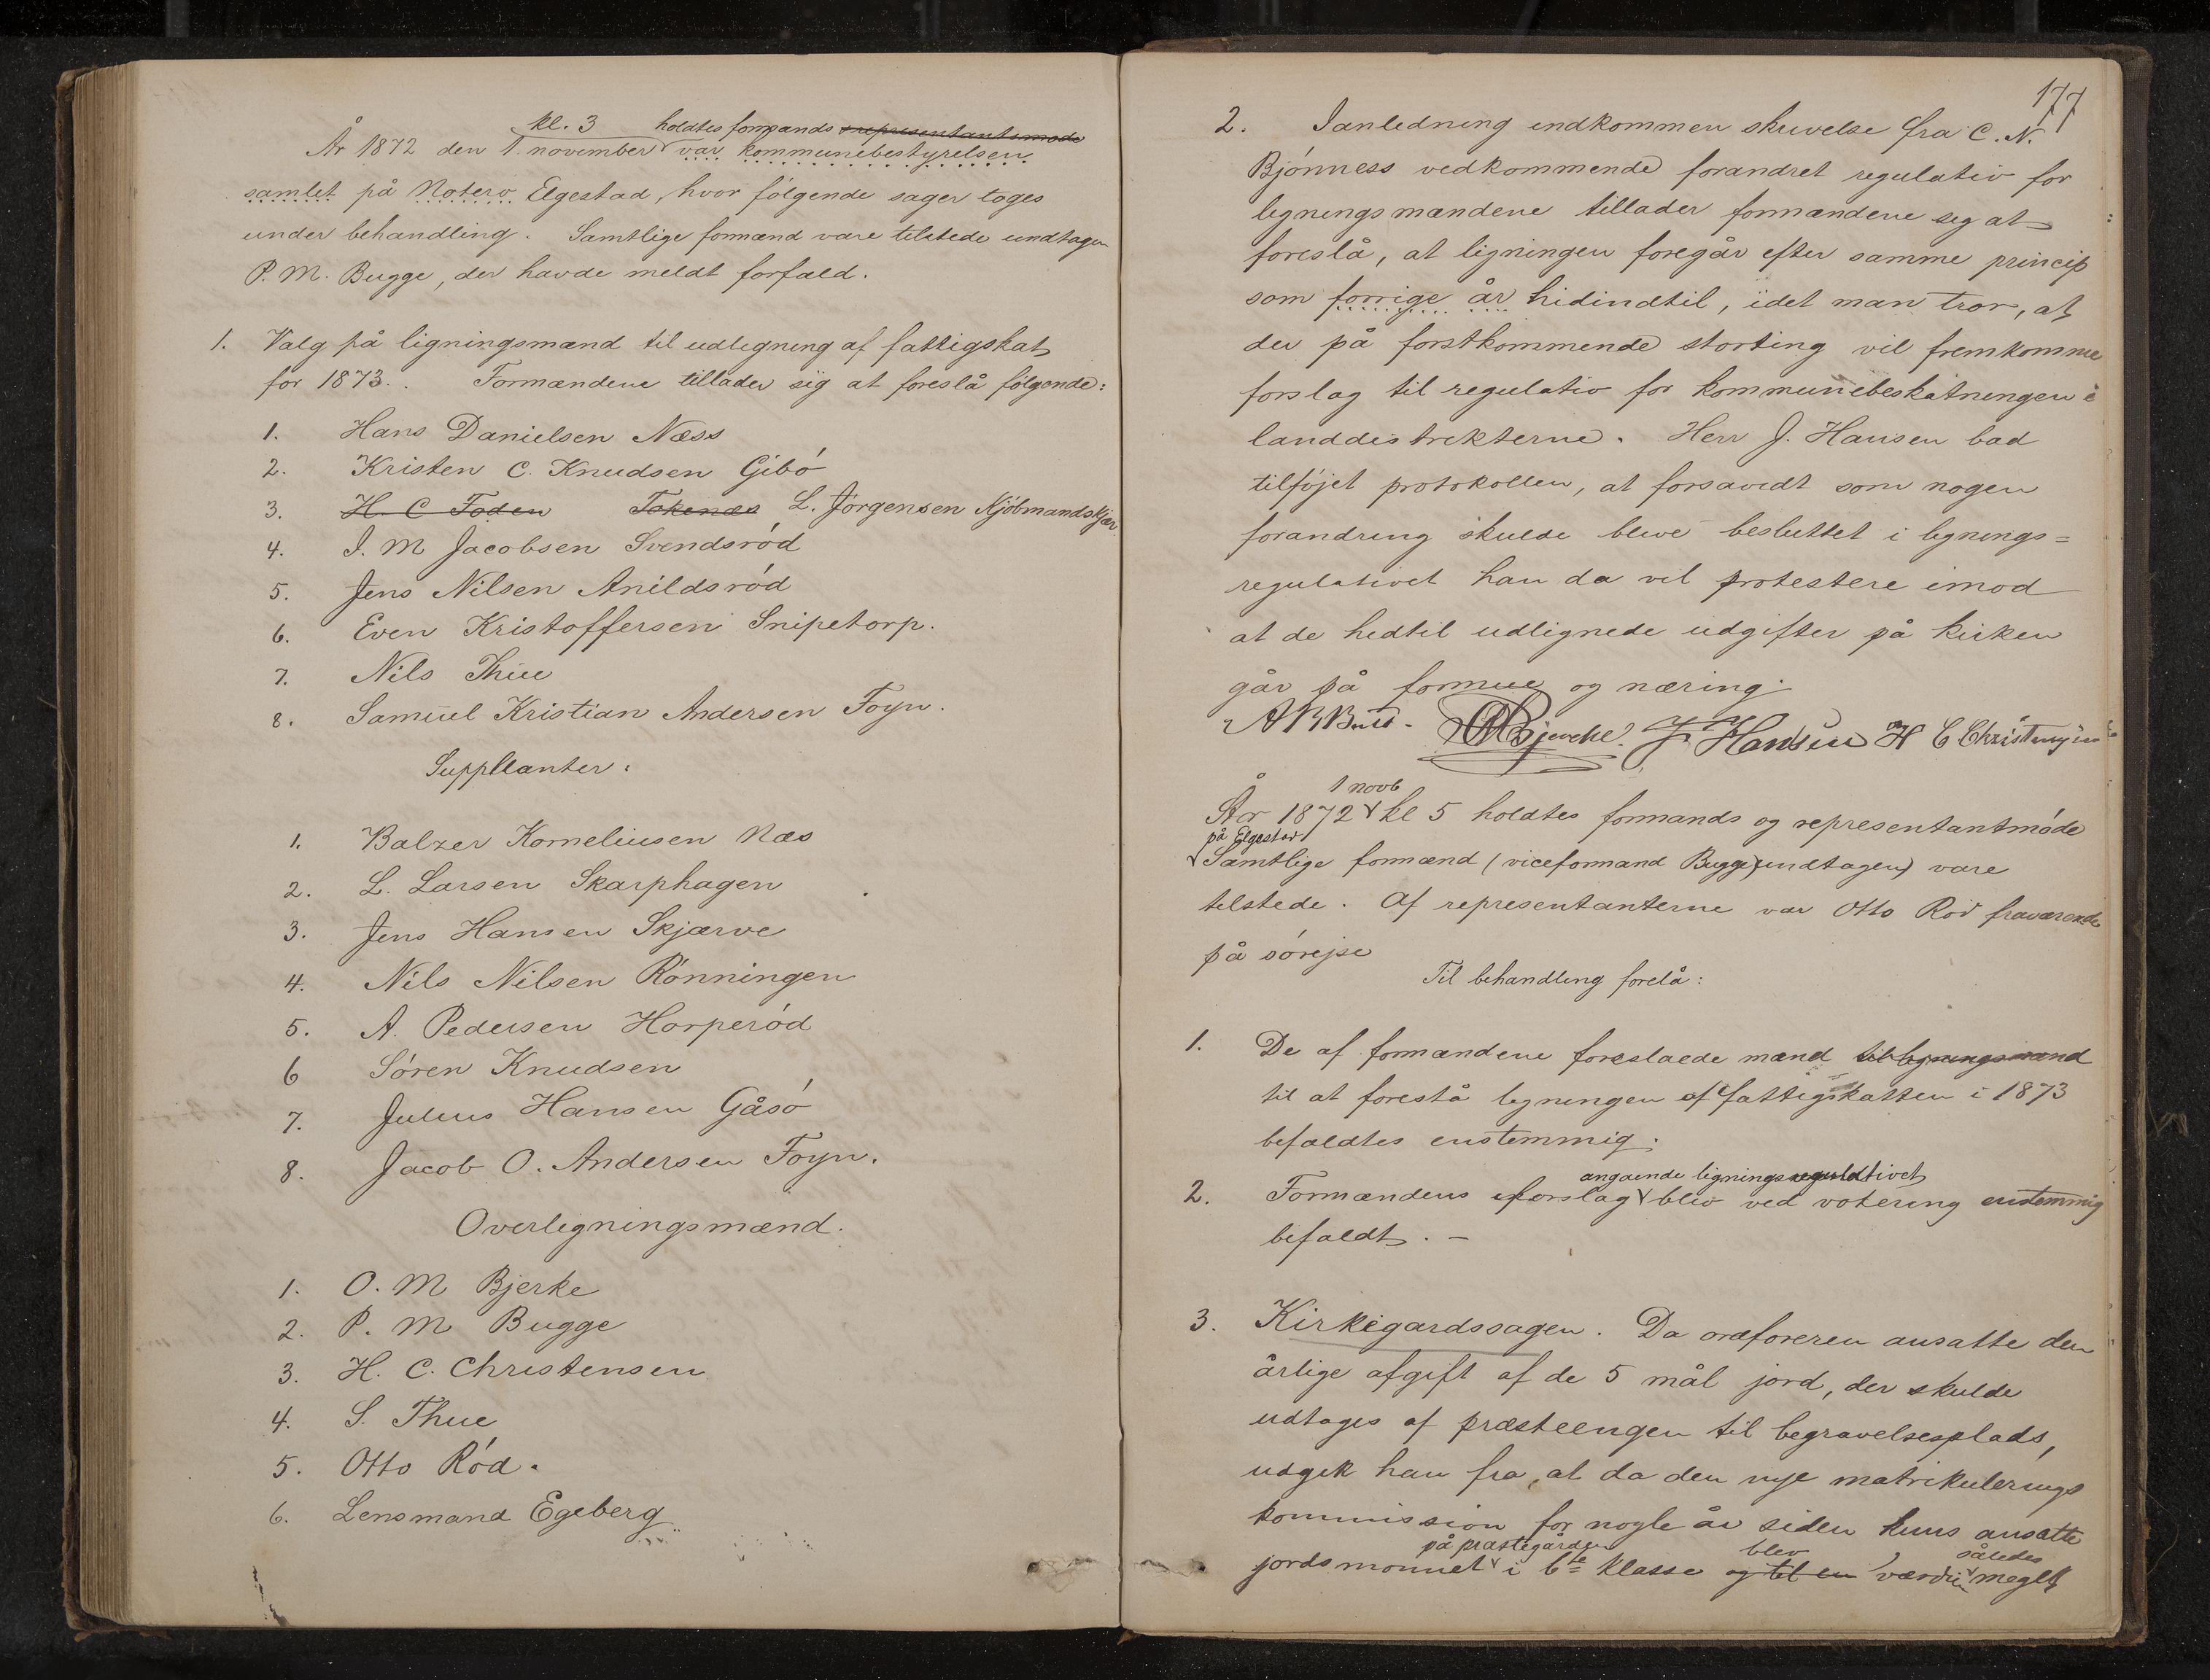 kl. 3 holdtes formands srepresentantsmøde
År 1872 den 1 november var kommunebestyrelsen
samlet på Notero Elgestad, hvor følgende sager toges
under behandling. Samtlige formænd vare tilstede undtagen
P. M. Bugge, der havde meldt forfald.
1. Valg på ligningsmænd til udligning af fattigskat
for 1873. Formændene tillader sig at foreslå følgende:
1. Hans Danielsen Næss
2. Kristen C. Knudsen Gibó
3. H. C Foden Tokenæs L. Jørgensen Kjöbmandskjær
4. I. M Jacobsen Svendsród
5. Jens Nilsen Anildsród
6. Even Kristoffersen Snipetorp.
7. Nils Thue
8. Samuel Kristian Andersen Foyn.
Suppleanter:
1. Balzer Korneliusen Næs
2. L. Larsen Skarphagen
3. Jens Hansen Skjærve
4. Nils Nilsen Rónningen
5. A. Pedersen Horperód
6 Sóren Knudsen
7. Julius Hansen Gåsó
8. Jacob O. Andersen Foyn.
Overligningsmænd.
1. O. M Bjerke
2. P. M Bugge
3. H. C. Christensen
4. S. Thue
5. Otto Ród.
6. Lensmand Egeberg
177
2. I anledning indkommen skrivelse fra C. N.
Bjónness vedkommende forandret regulativ for
ligningsmændene tillader formændene sig at
foreslå, at ligningen foregår efter samme princip
som forrige år hidindtil, idet man tror, at
der på forstkommende storting vil fremkomme
forslag til regulativ for kommunebeskatningen i
landdistrikterne. Herr J. Hansen bad
tilføjet protokollen, at forsavidt som nogen
forandring skulde blive besluttet i lignings=
regulativet han da vil protestere imod
at de hidtil udlignede udgifter på kirken
går på formue og næring.
OMBjercke. J Hansen H C Christensen
1 novb
År 1872 kl 5 holdtes formands og representantmóde
på Elgestad
Samtlige formænd (viceformand Bugge undtagen) vare
tilstede. Af representanterne var Otto Ród fraværende
på sórejse
Til behandling forelå:
1. De af formændene foreslaede mænd til ligningsmænd
til at forestå ligningen af fattigskatten i 1873
bifaldtes enstemmig.
angaende ligningsregulativet
2. Formændens forslag blev ved votering enstemmig
bifaldt. –
3. Kirkegardssagen. Da ordføreren ansatte den
årlige afgift af de 5 mål jord, der skulde
udtages af præsteengen til begravelsesplads,
udgik han fra, at da den nye matrikulerings
kommission for nogle år siden kuns ansatte
på præstegården blev således
jordsmonnet i 6te klasse og til en værdien meget